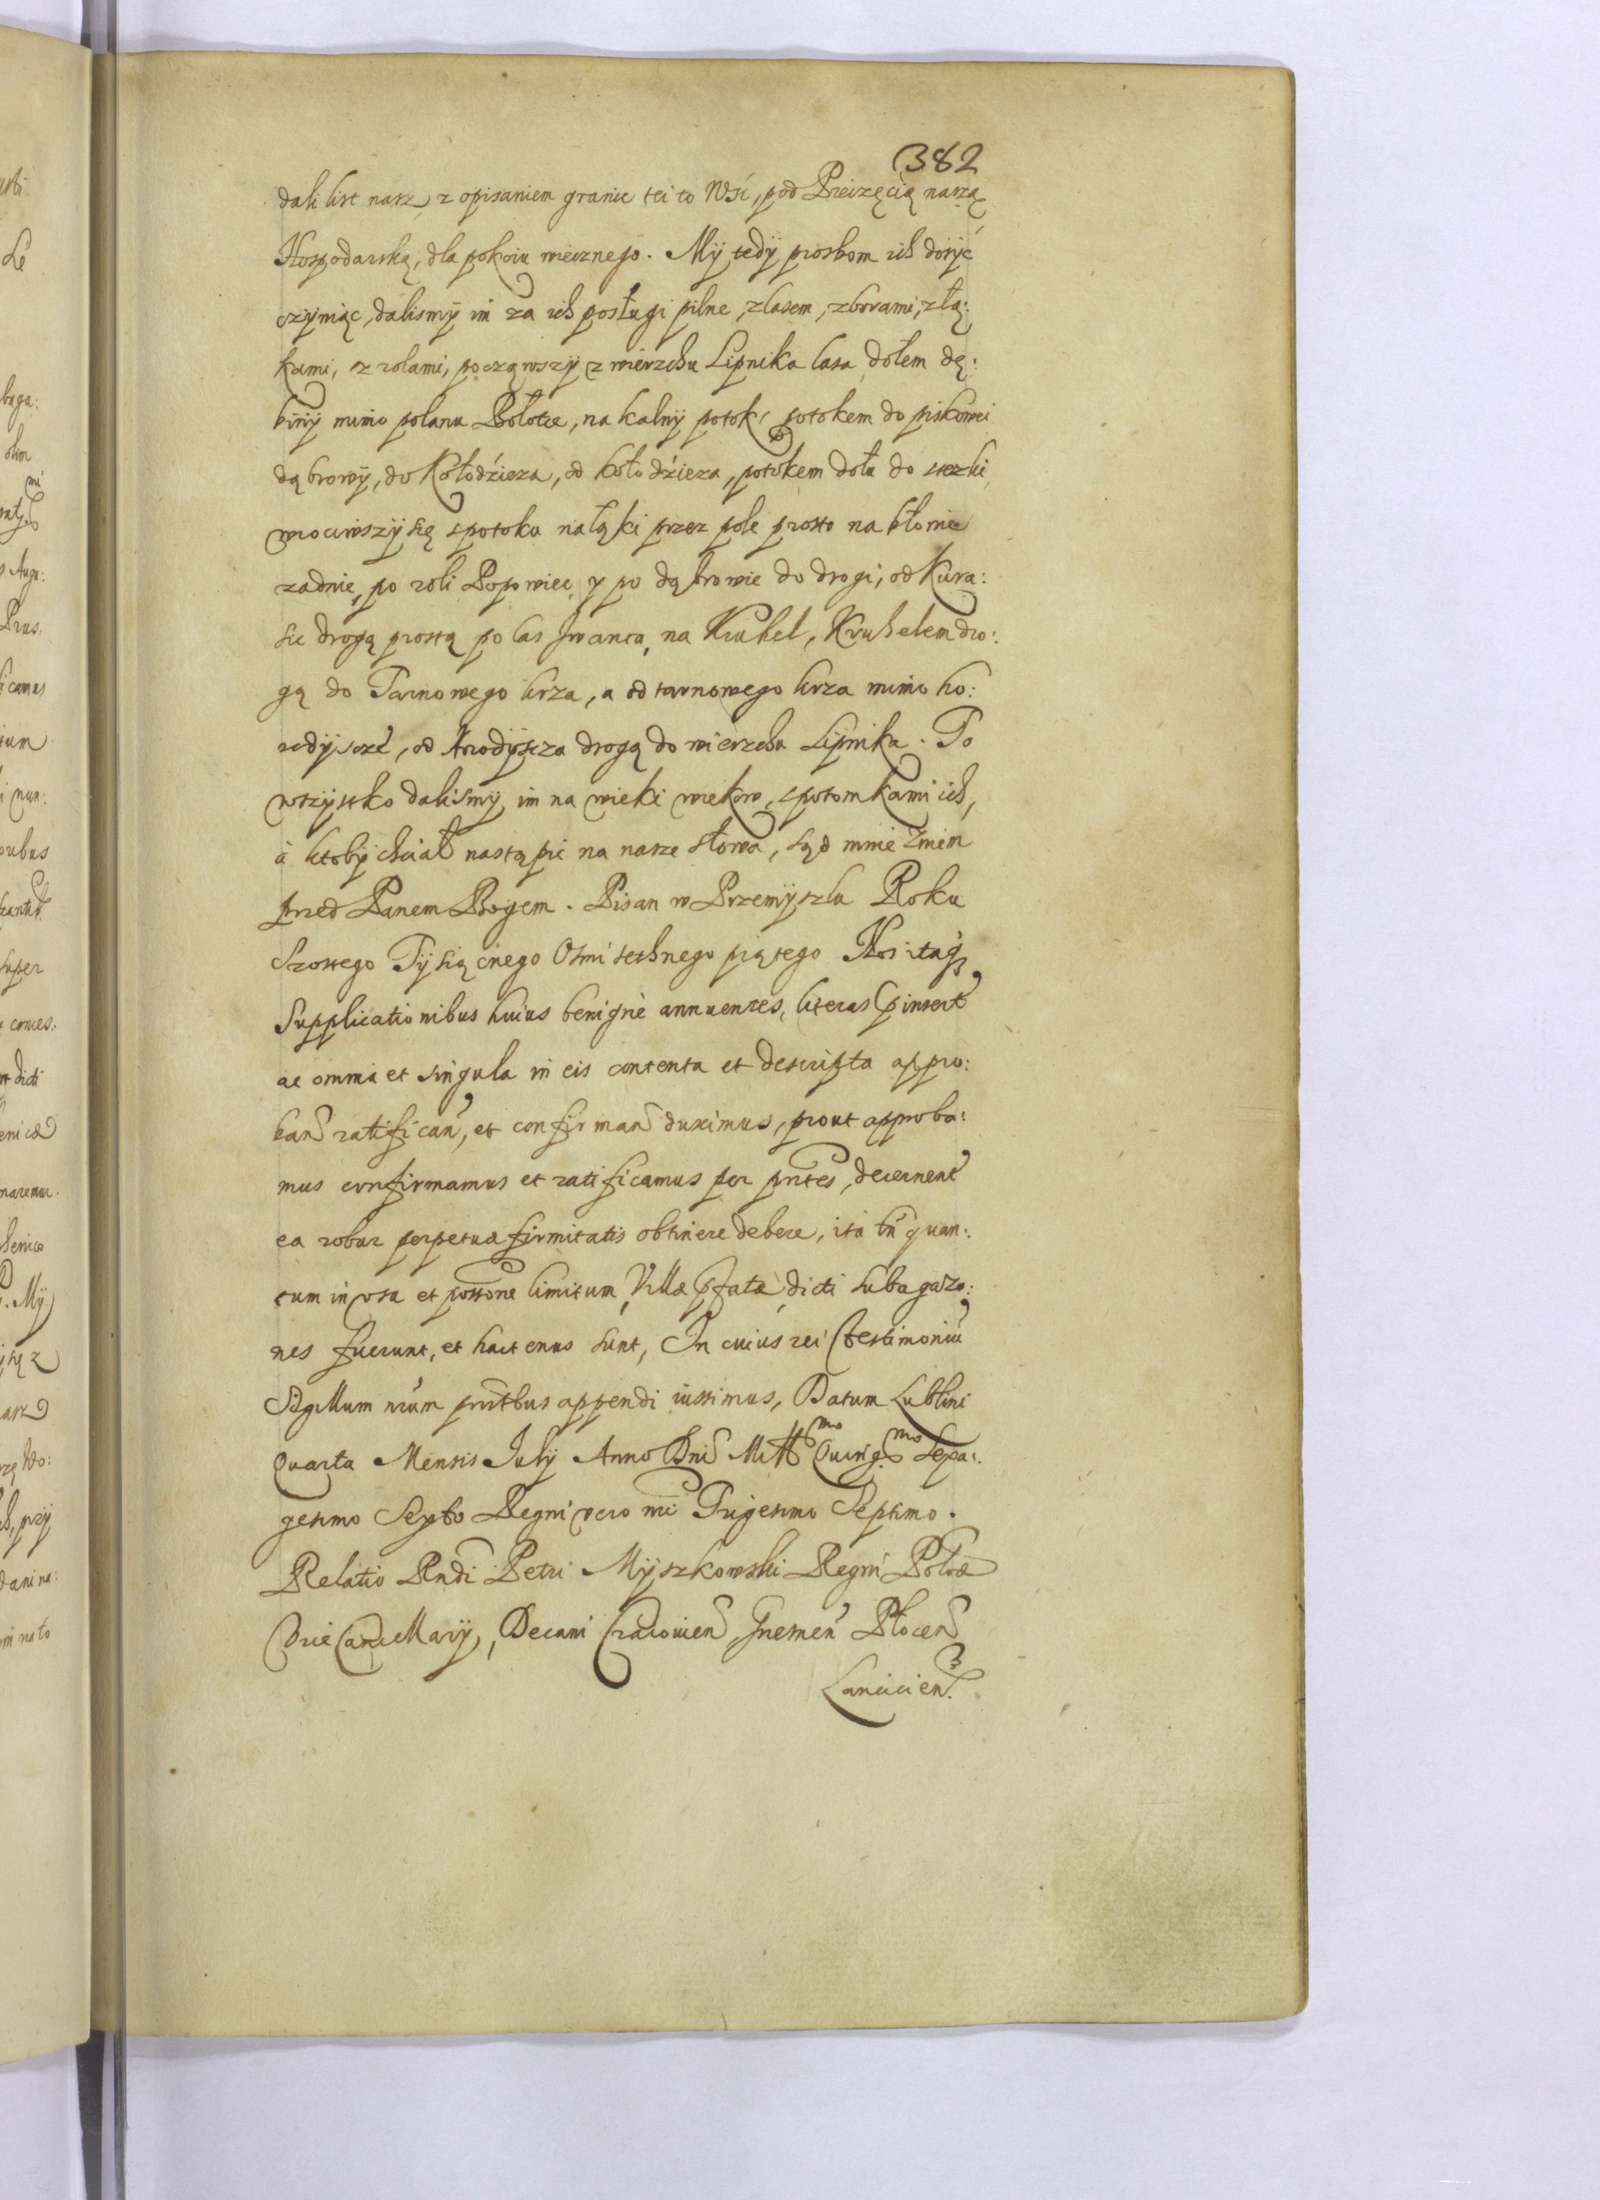 382
dali list nasz, z opisaniem granic tei to Wsi, pod Pieczęcią naszą
Hospodarską, dla pokoiu wiecznego. My tedy prosbom ich dosyć
czyniąc, dalismy im za ich posługi pilne, zlasem, zborami, złą:
kami, z rolami, począwszy z wierzchu Lipnika lasa dołem dę:
biny mimo polanu Bołotce, na kalny potok, potokem do piskowei
dąbrowy, do Kołodźieza, od kołodźieza, potokem dołu do stezki
wrociwszy się spotoku nałąki przez pole prosto na błonie
zadnie, po roli Popowiec, y po dąbrowie do drogi, od Kura:
sic drogą prostą po las Jwanca, na Kruhel, Kruhelem dro:
gą do Tarnowego krza, a od tarnowego krza mimo ho:
rodyscze, od horodyscza drogą do wierzchu Lipnika. To
wszystko dalismy im na wieki wiekow, spotomkami ich,
à ktoby chciał nastąpic na nasze słowa, sąd mnie znim
przed Panem Bogem. Pisan w Przemyszlu Roku
Szostego Tysiącnego Osmisethnego piątego Nos itaq
Supplicationibus huius benignè annuentes, literas pinsert
ac omnia et singula in eis contenta et descripta appro:
ban ratifican, et confirman duximus, prout approba:
mus confirmamus et ratificamus per pntes, decernent
ea robur perpetuæ firmitatis obtinere debere, ita tn quan:
tum in usu et possone limitum Villæ pfatæ dicti subagazo:
nes fuerunt, et hactenus sunt, In cuius rei testimoniu
Sigillum nrum pntbus appendi iussimus, Datum Lublini
Quarta Mensis July Anno Dni Mill mo Quing mo Sexa:
gesimo Sexto Regni vero nri Trigesimo Septimo.
Relatio Rndi Petri Myszkowski Regni Polæ
Vice Cancellarij, Decani Cracovien Gnesnen Plocen
Lancicien.